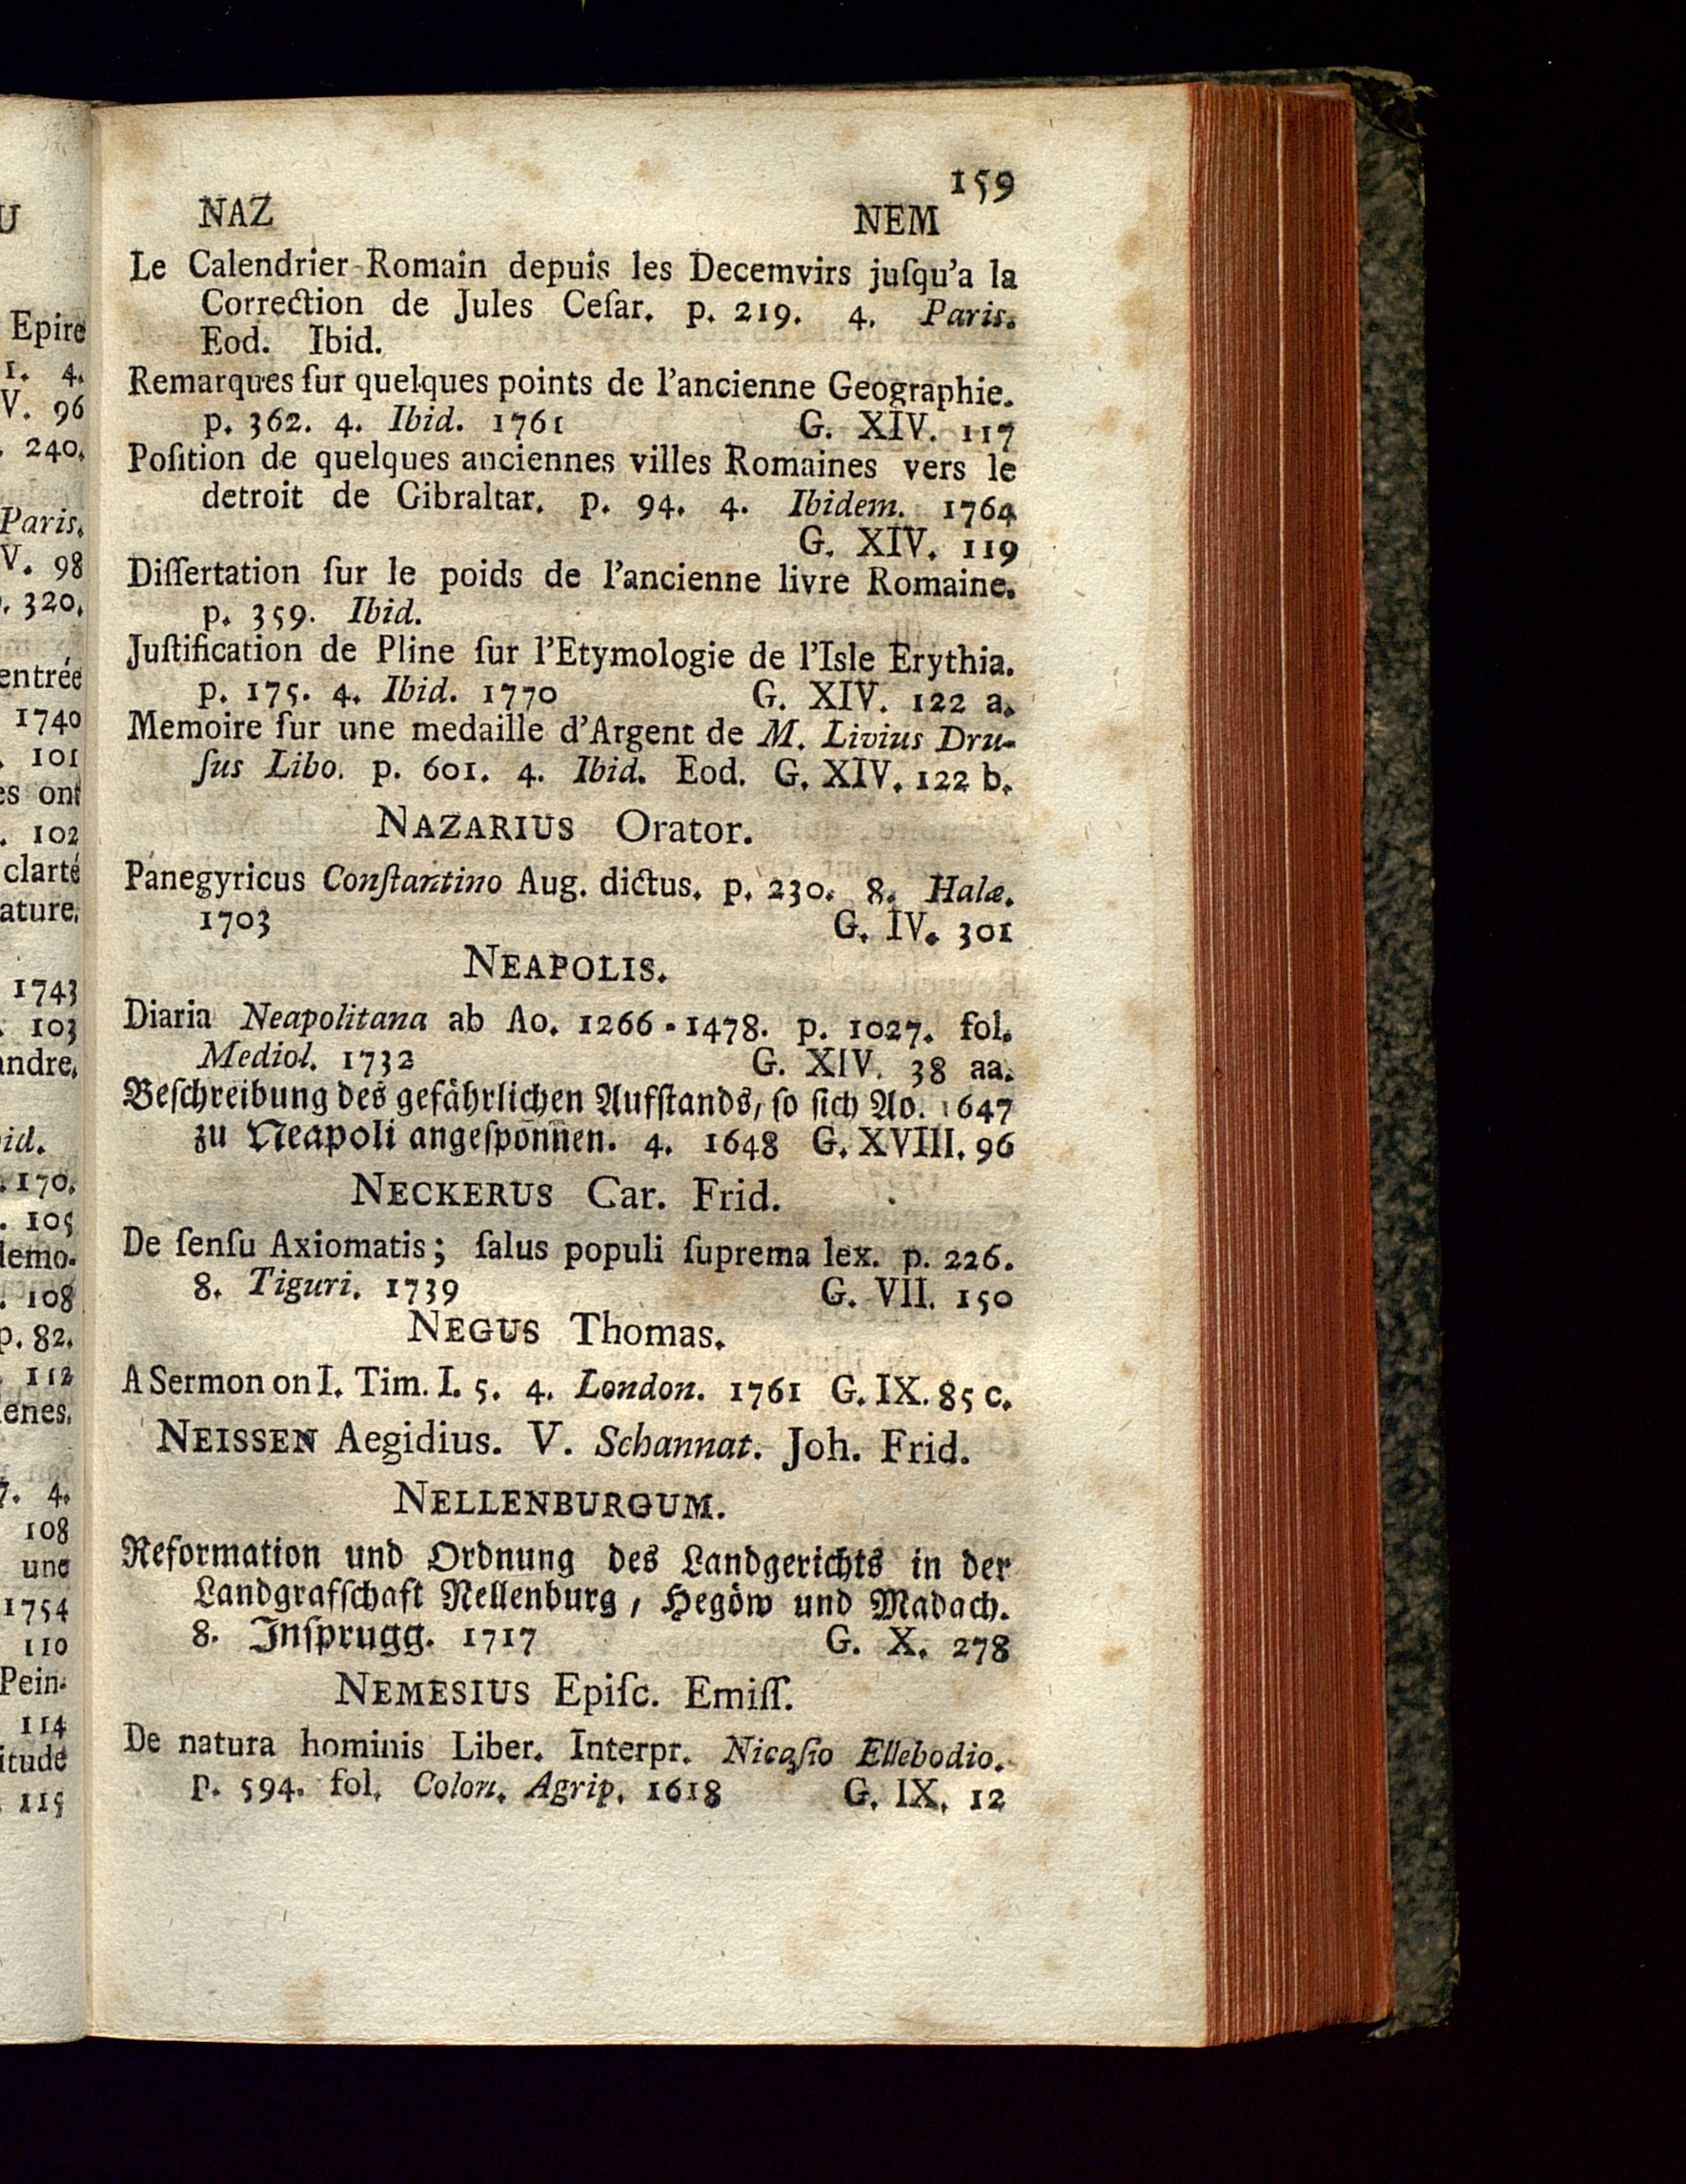 U
Epire
1. 4.
V. 96
240.
Paris.
V. 98
320.
entrée
1740
101
es ont
. 102
clarté
ature.
1743
103
andre.
id.
170.
. 105
demo-
. 108
p. 82.
112
enes.
7. 4.
108
une
1754
110
Pein-
114
itude
115
159
NAZ NEM
Le Calendrier Romain depuis les Decemvirs juſqu'a la
Correction de Jules Ceſar. p. 219. 4. Paris.
Eod. Ibid.
Remarques ſur quelques points de l'ancienne Geographie.
p. 362. 4. Ibid. 1761 G. XIV. 117
Poſition de quelques anciennes villes Romaines vers le
detroit de Gibraltar. p. 94. 4. Ibidem. 1764
G. XIV. 119
Diſſertation ſur le poids de l'ancienne livre Romaine.
p. 359. Ibid.
Juſtification de Pline ſur l'Etymologie de l'Isle Erythia.
p. 175. 4. Ibid. 1770 G. XIV. 122 a.
Memoire ſur une medaille d'Argent de M. Livius Dru-
ſus Libo. p. 601. 4. Ibid. Eod. G. XIV. 122 b.
NAZARIUS Orator.
Panegyricus Conſtantino Aug. dictus. p. 230. 8. Halæ.
1703 G. IV. 301
NEAPOLIS.
Diaria Neapolitana ab Ao. 1266-1478. p. 1027. fol.
Mediol. 1732 G. XIV. 38 aa.
Beſchreibung des gefährlichen Aufſtands, ſo ſich Ao. 1647
zu Neapoli angeſponnen. 4. 1648 G. XVIII. 96
NECKERUS Car. Frid.
De ſenſu Axiomatis; ſalus populi ſuprema lex. p. 226.
8. Tiguri. 1739 G. VII. 150
NEGUS Thomas.
A Sermon on I. Tim. I. 5. 4. London. 1761 G. IX. 85 c.
NEISSEN Aegidius. V. Schannat. Joh. Frid.
NELLENBURGUM.
Reformation und Ordnung des Landgerichts in der
Landgrafſchaft Nellenburg, Hegöw und Madach.
8. Inſprugg. 1717 G. X. 278
NEMESIUS Epiſc. Emiſſ.
De natura hominis Liber. Interpr. Nicaſio Ellebodio.
p. 594. fol. Colon. Agrip. 1618 G. IX. 12